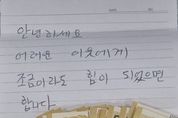 안녕하세요
어려운 이웃에게
조금이라도 힘이 되었으면
합니다